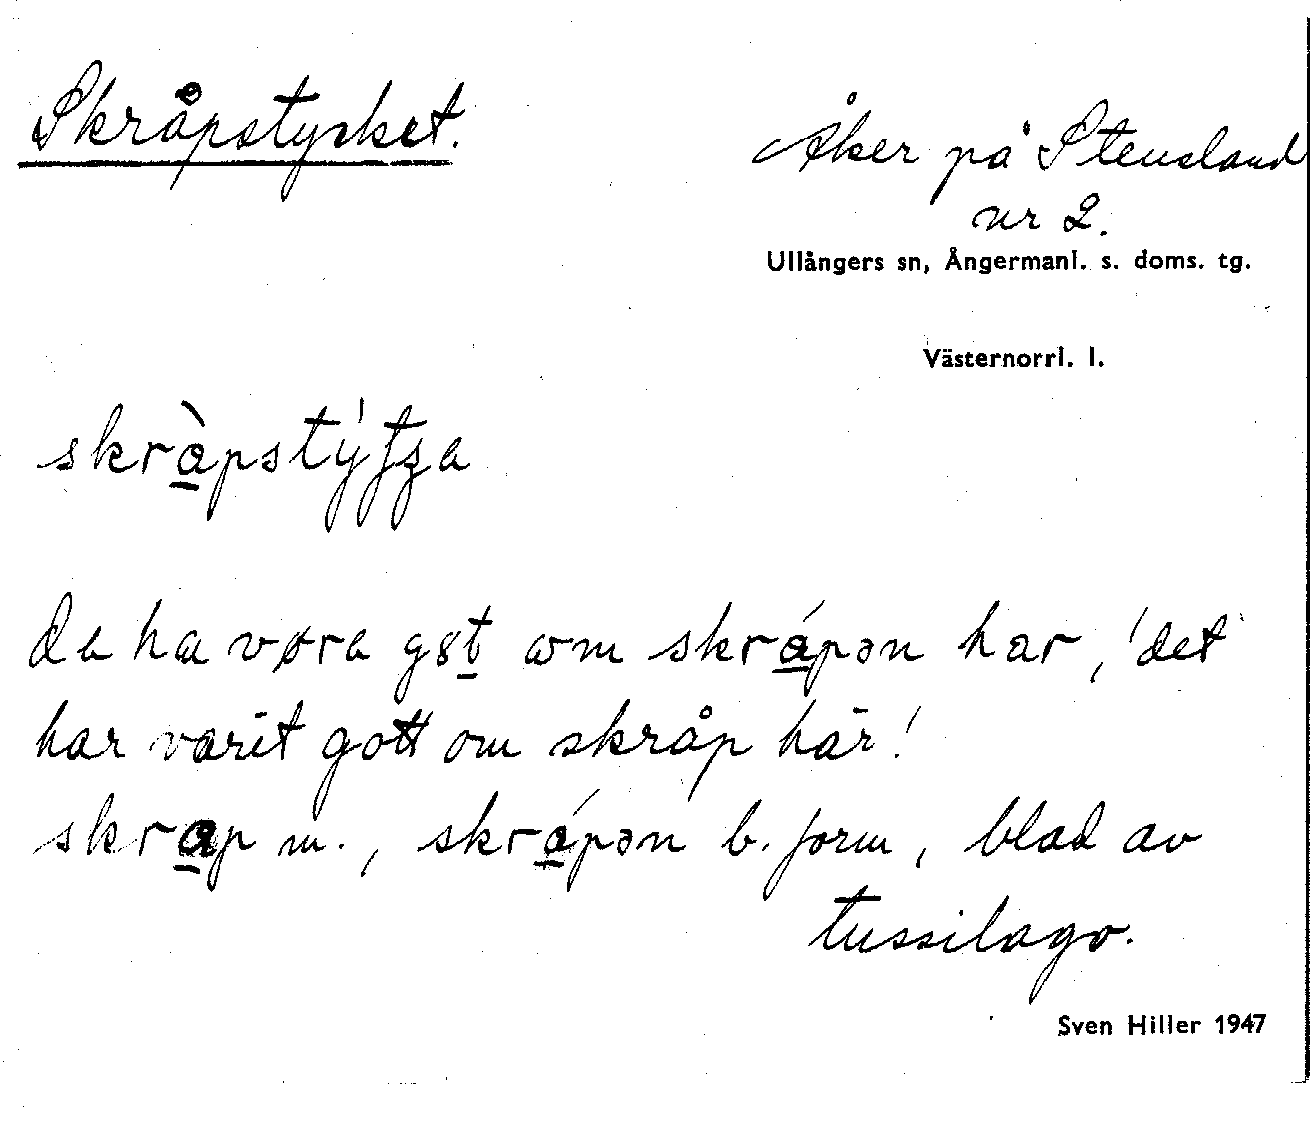 Skråpstycket.
Åker på Stensland
nr 2.
Ullångers sn, Ångermanl. s. doms. tg.
Västernorrl. l.
da ha vøra om skrá̱pən har, 'det
har varit gott om skråp här!
skra̱p m., skrá̱pən b. form, blad av
tussilago.
Sven Hiller 1947